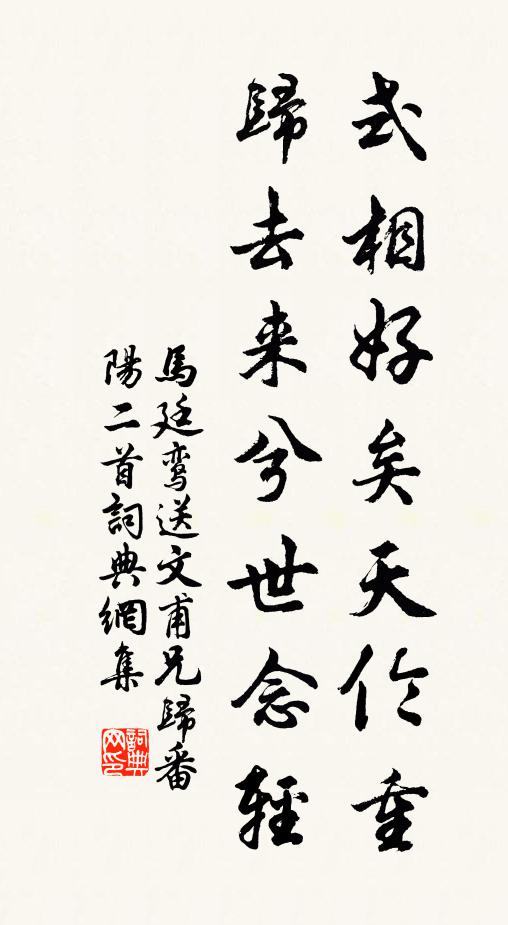 式相好矣天伦重
歸去来兮世念輕
馬廷鸾送文甫兄歸番
陽二首詞典網集
詞典网印